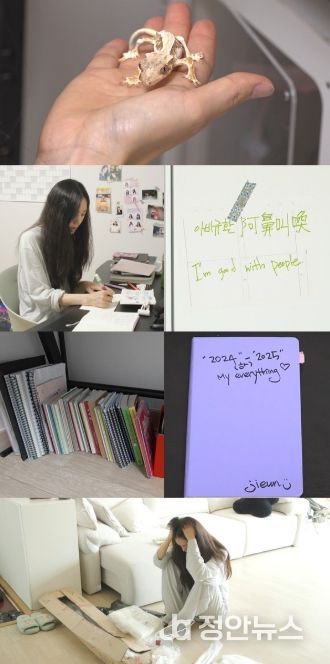 아비규환 阿鼻叫喚
I'm good with people
"2024" "2025"
My everything♡
jieun
정안뉴스